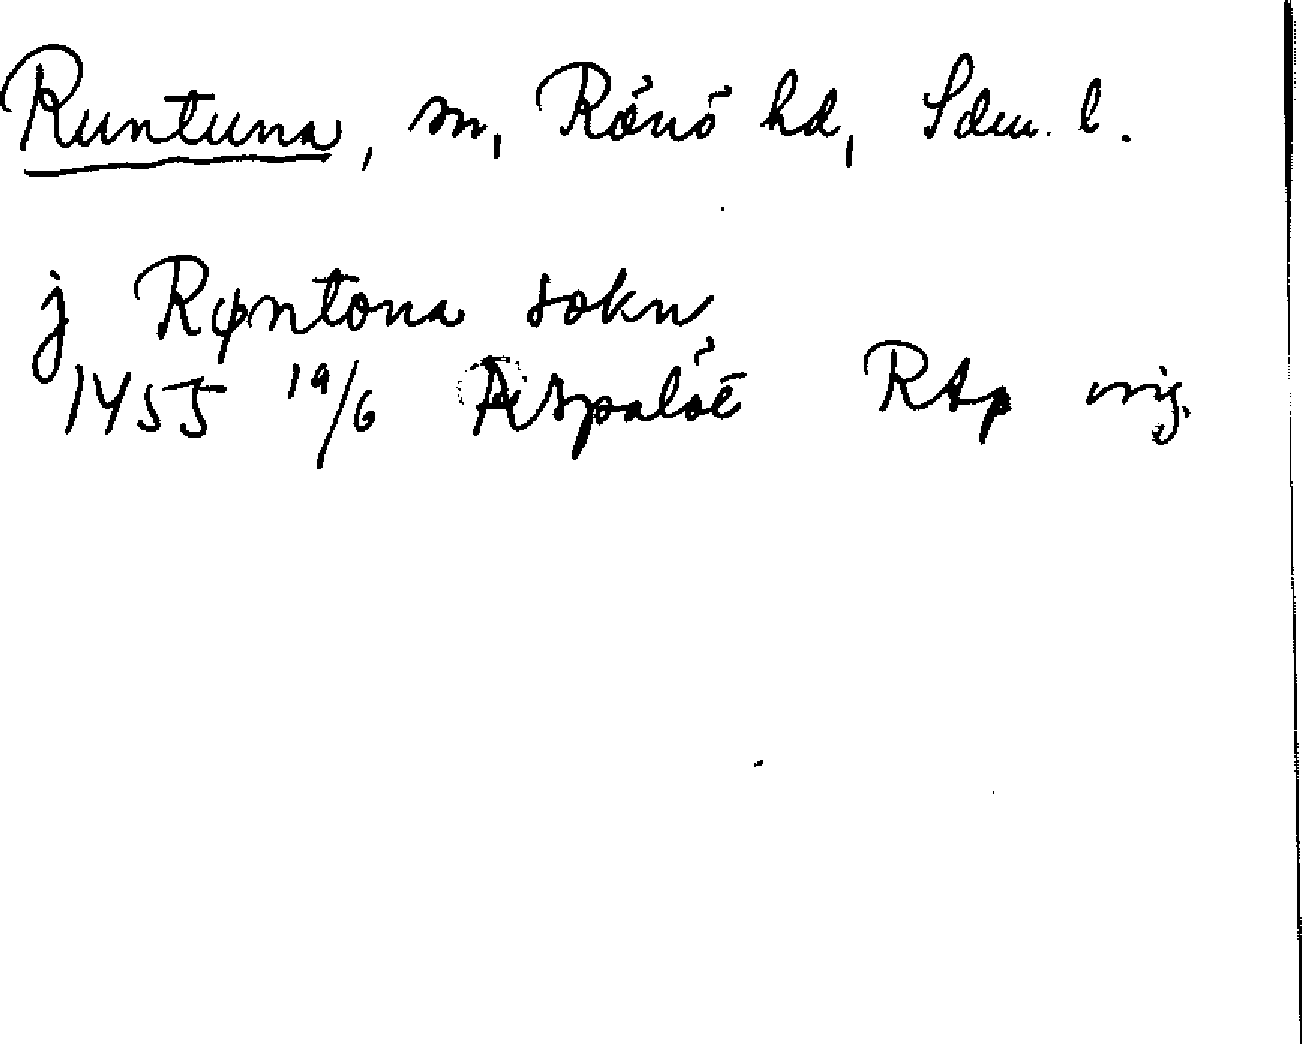 Runtuna, sn, Rönö hd, Sdm. l.
j Røntona sokn
1455 19/6 Aspalöt RAp orig.